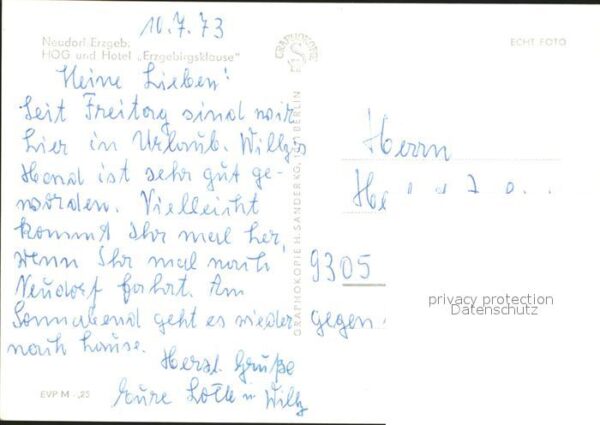 10.7.73
Neudorf Erzgeb.
HOG und Hotel „Erzgebirgsklause"
ECHT FOTO
Meine Lieben!
Seit Freitag sind wir
hier in Urlaub. Willys
Hand ist sehr gut ge-
worden. Vielleicht
kommt Ihr mal her,
wenn Ihr mal nach
Neudorf fahrt. Am
Sonnabend geht es wieder gegen
nach hause.
Herzl. Grüße
Eure Lotte u Willy
GRAPHOKOPIE H. SANDER KG, BERLIN
Herrn
9305
privacy protection
Datenschutz
EVP M -,25